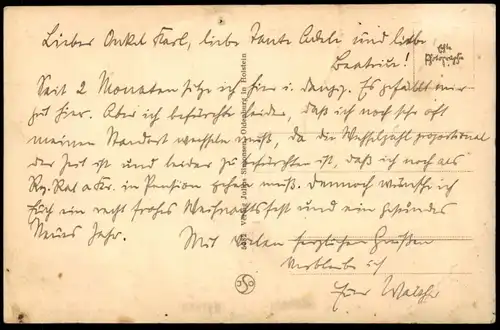 Lieber Onkel Karl, liebe Tante Adele und liebe
Beatrice!
Echte
Photographie
Seit 2 Monaten sitze ich hier i. Danzig. Es gefällt mir
gut hier. Aber ich befürchte leider, daß ich noch sehr oft
meinen Standort wechseln muß, da die Wechselzahl proportional
der Zeit ist und leider zu befürchten ist, daß ich noch als
Rg. Rat a. in Pension gehen muß. Dennoch wünsche ich
Euch ein recht frohes Weihnachtsfest und ein gesundes
Neues Jahr. Mit vielen herzlichen Grüßen
verbleibe ich
Euer Walther
Verlag Julius Simonsen, Oldenburg in Holstein